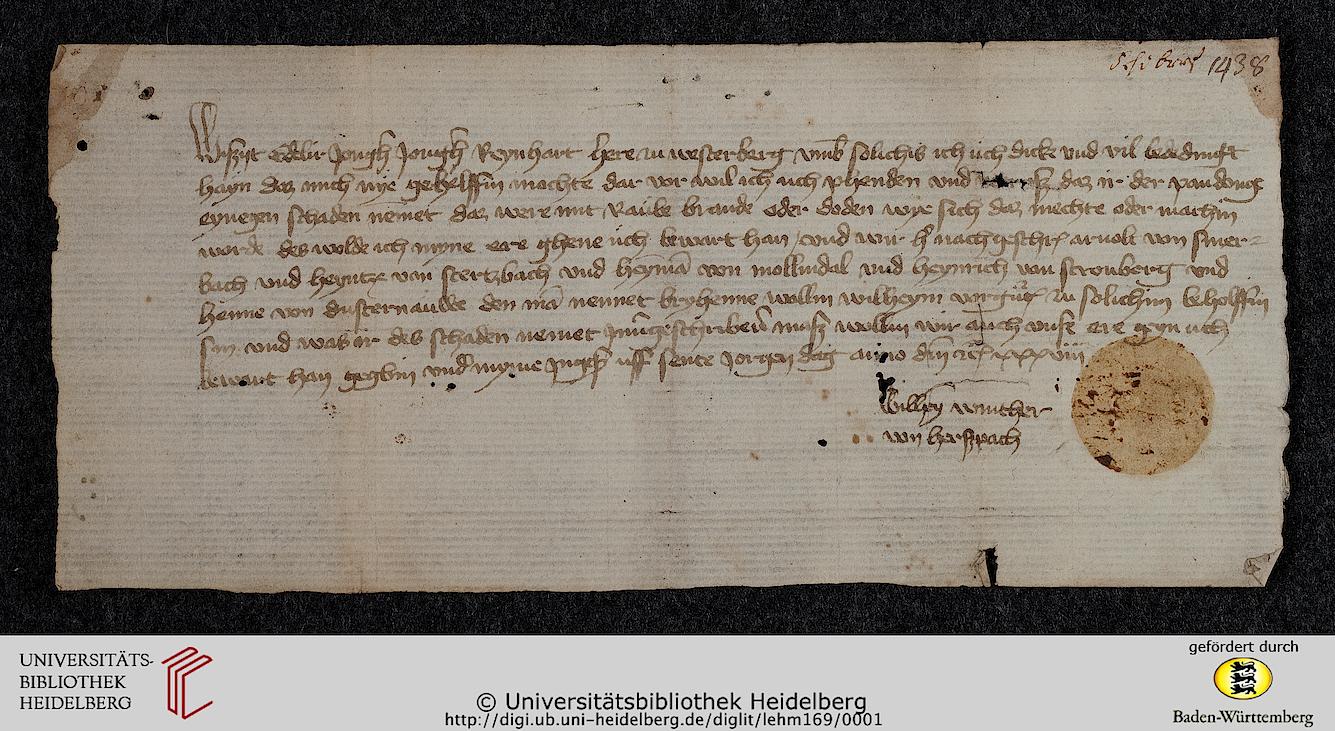 1438
Wißzit Edelir Jongh Jongh Reynhart here zu westerberg vmb solichis ich uch dick vnd vil bededingt
hayn daz mich nye gehelffin mochte dar vor wil ich uch phenden vnd daz ir der pandong
eynegen schaden nemet daz were mit Raube brande oder doden wye sich daz mechte oder machin
worde des wolde ich myne ere ghene uch bewart han vnd wir h nachgeschr arnolt von
bach vnd heyntze van stertzbach vnd heyma von mollindal vnd heynrich van stronberg vnd
henne von dusternauwe den ma nennet bryhenne wollin wilheym zu solichim beholffin
sin vnd was ir des schaden nemet wollin wir auch vnse ere geyn uch
bewart han gegbin vnd myme Ingeß uff sente Jorgen dag anno dm xxxviii
Wilhey winther
von herßpach
UNIVERSITÄTS-
BIBLIOTHEK
HEIDELBERG
© Universitätsbibliothek Heidelberg
http://digi.ub.uni-heidelberg.de/diglit/lehm169/0001
gefördert durch
Baden-Württemberg